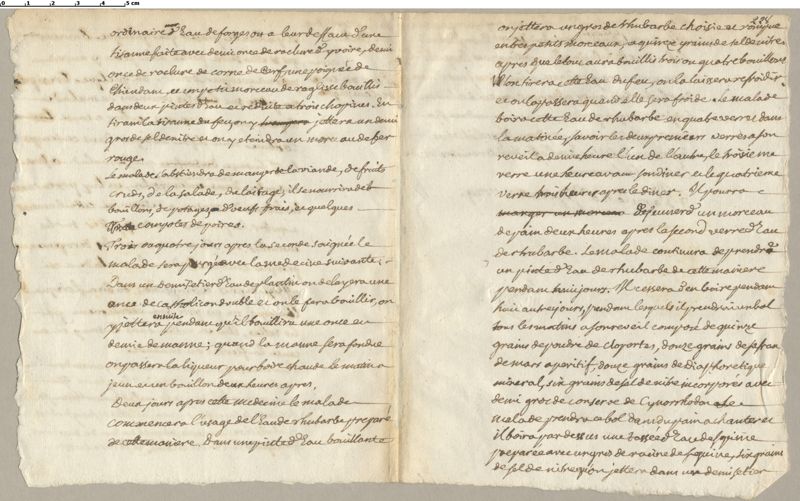 0 1 2 3 4 5 cm
ordinaire d'Eau de forges ou a leur deffaut d'une
tisanne faite avec demi once de raclure d'yvoire, demi
once de raclure de corne de Cerf, une poignée de
Chiendam, et un petit morceau de raglisse bouillis
dans deux pintes d'Eau et reduite a trois chopines. En
tirant la tisanne du feu, on y jettera un demi
gros de sel de nitre et on y eteindra un morceau de fer
rouge.
Le malade s'abstiendra de manger de la viande, de fruits
cruds, de la salade, de laitage; il se nourrira de b
bouillons, de potages, d'oeufs frais, et quelques
compotes de poires.
Trois ou quatre jours apres la seconde saignée le
malade sera purgé avec la medecine suivante;
Dans un demisetier d'eau de plantin on delayera une
once de Catholicon double et on le fera bouillir, on
ensuite
y jettera pendant qu'il bouillira une once en
demie de manne; quand la manne sera fondue
on passera la liqueur pour boire chaude le matin a
jeun et un bouillon deux heures apres.
Deux jours apres cette medecine le malade
commencera l'usage de l'Eau de rhubarbe preparé
de cette maniere. Dans une pinte d'Eau bouillante
224
on jettera un gros de rhubarbe choisie et rompue
en tres petits morceaux, quinze grains de sel de nitre
apres que le tout aura bouilli trois ou quatre bouillons
l'on tirera cette Eau du feu, on la laissera refroidir
et on la passera quand elle sera froide. Le malade
boira cette Eau de rhubarbe en quatre verres dans
la matinée, savoir les deux premiers verres a son
reveil a demie heure l'un de l'autre, le troisieme
verre une heure avant son diner et le quatrieme
verre trois heures apres le diner. Il pourra
manger un morceau dejeuner d'un morceau
de pain deux heures apres le second verre d'Eau
de rhubarbe. Le malade continura de prendre
un pinte d'Eau de rhubarbe de cette maniere
pendant huit jours. Il cessera d'en boire pendant
huit autres jours, pendant lesquels il prendra un bol
tous les matins a son reveil composé de quinze
grains de poudre de cloportes, douze grains de safran
de mars aperitif, douze grains de diaphoretique
mineral, six grains de sel de nitre incorporés avec
demi gros de conserve de Cynorrhodon. Le
malade prendra ce bol dans du pain a chanter et
il boira par dessus une tasse d'Eau de squine
preparée avec un gros de racine de squine, six grains
de sel de nitre qu'on jettera dans un demisetier